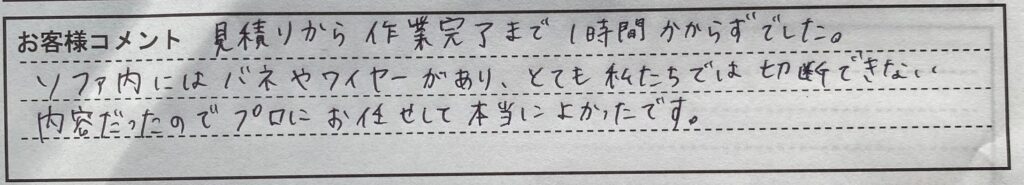 お客様コメント 見積りから作業完了まで1時間かからずでした。
ソファ内にはバネやワイヤーがあり、とても私たちでは切断できない
内容だったのでプロにお任せして本当によかったです。